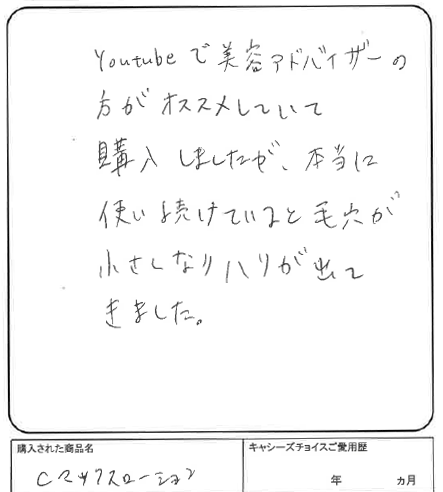 Youtubeで美容アドバイザーの
方がオススメしていて
購入しましたが、本当に
使い続けていると毛穴が
小さくなりハリが出て
きました。
購入された商品名
キャシーズチョイスご愛用歴
Cマックスローション
年 ヵ月